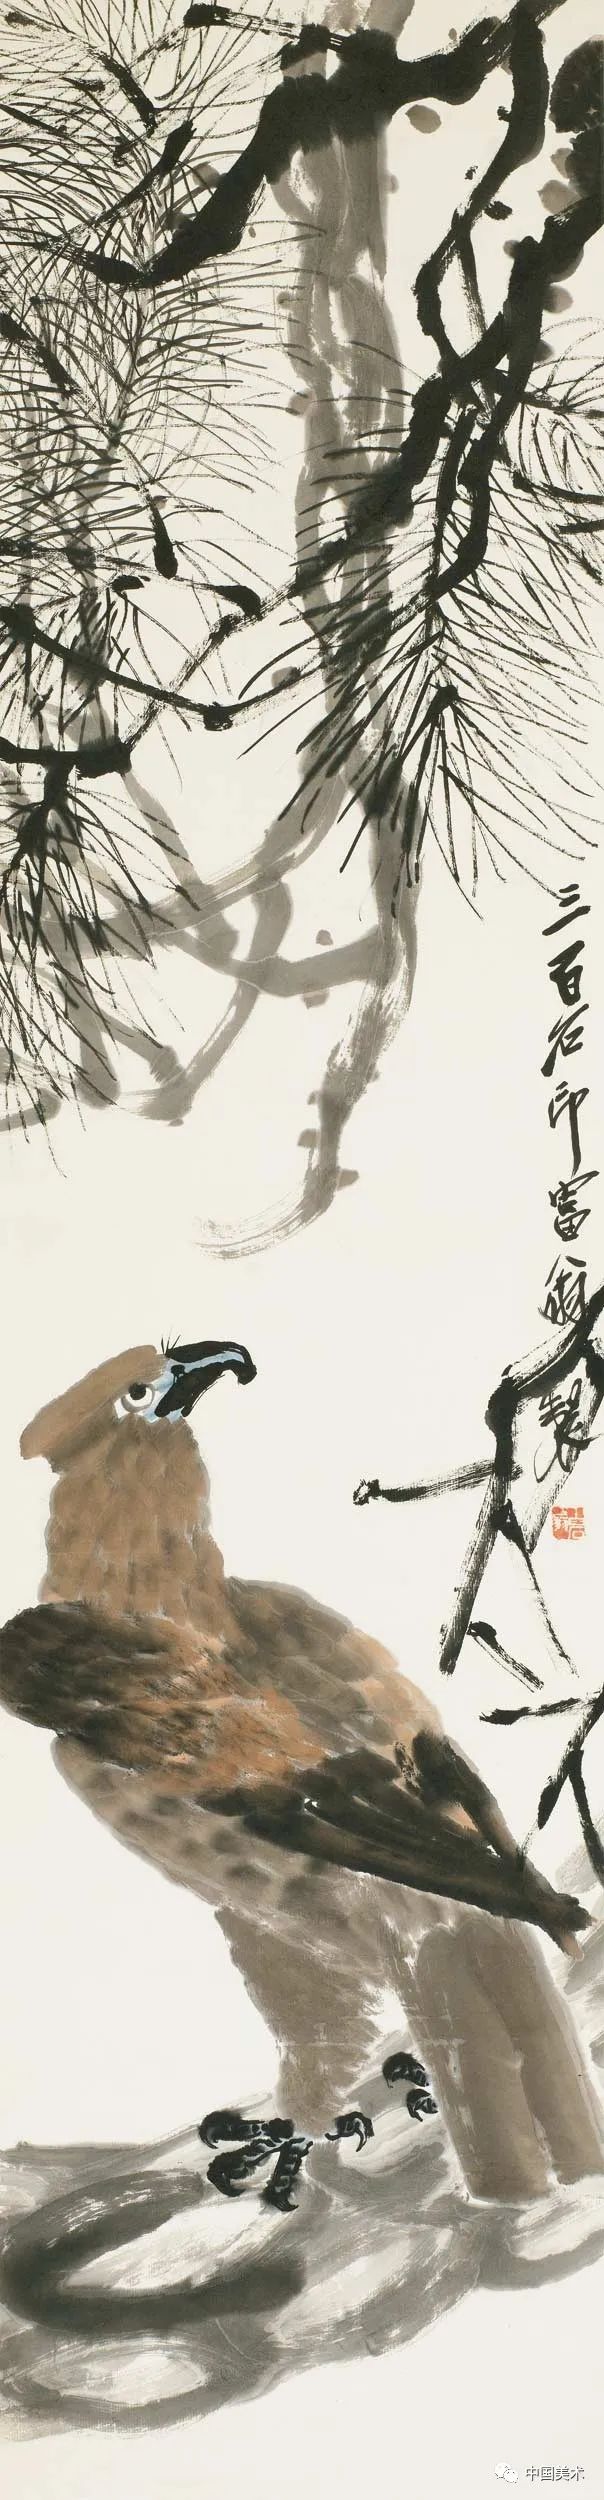 三百石印富翁製
中国美术